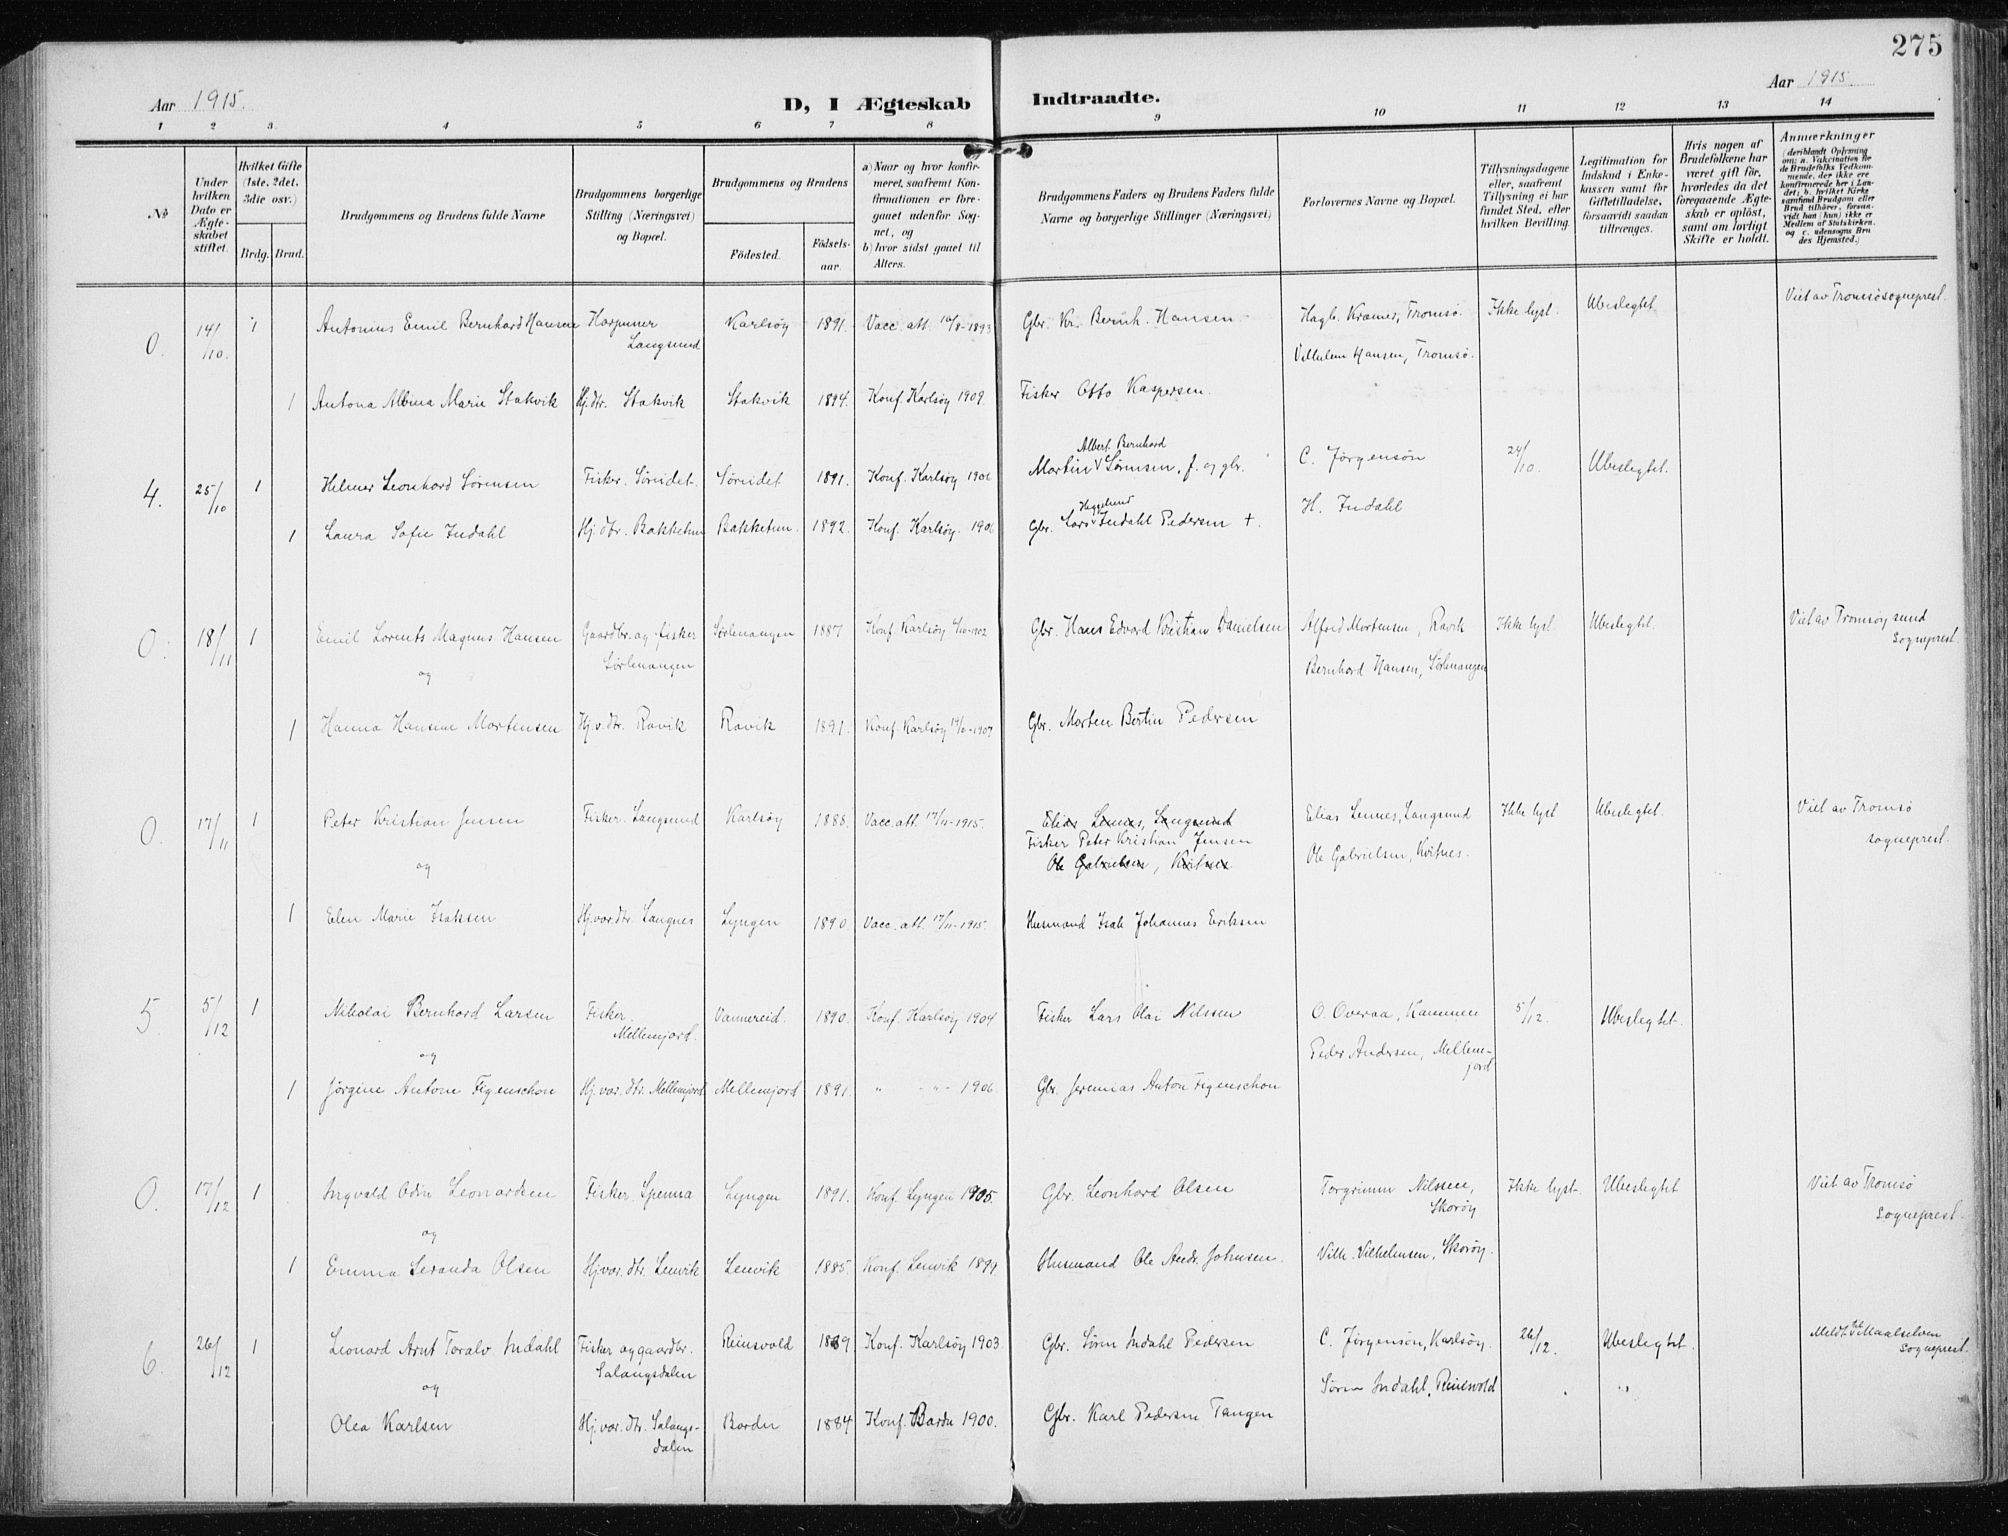 275
Aar 1915.
D, I Ægteskab Indtraadte.
Aar 1915
1 2 3 4 5 6 7 8 9 10 11 12 13 14
No
Under hvilken Dato er Ægteskabet stiftet.
Hvilket Gifte (1ste, 2det, 3die osv.)
Brdg. Brud.
Brudgommens og Brudens fulde Navne
Brudgommens borgerlige Stilling (Næringsvei) og Bopæl.
Brudgommens og Brudens
Födested.
Födsels-aar.
a) Naar og hvor konfirmeret, saafremt Konfirmationen er foregaaet udenfor Sognet, og
b) hvor sidst gaaet til Alters.
Brudgommens Faders og Brudens Faders fulde Navne og borgerlige Stillinger (Næringsvei)
Forlovernes Navne og Bopæl.
Tillysningsdagene eller, saafremt Tillysning ei har fundet Sted, efter hvilken Bevilling.
Legitimation for Indskud i Enkekassen samt for Giftetilladelse, forsaavidt saadan tiltrænges.
Hvis nogen af Brudefolkene har været gift før, hvorledes da det foregaaende Ægteskab er opløst, samt om lovligt Skifte er holdt.
Anmærkninger
(deriblandt Oplysning om: a. Vakcination for de Brudefolks Vedkommende, der ikke ere konfirmerede her i Landet; b. hvilket Kirkesamfund Brudgom eller Brud tilhører, forsaavidt han (hun) ikke er Medlem af Statskirken, og c. udensogns Brudes Hjemsted.)
0. 14/10. 1 Antonius Emil Bernhard Hansen Harpuner Langsund Karlsöy 1891. Vacc. att. 10/8-1893 Gbr. Kr. Bernh. Hansen. Hagb. Kræmer, Tromsø. Ikke lyst. Ubeslegtet. Viet av Tromsösogneprest.
Vilhelm Hansen, Tromsø.
1 Antona Albina Marie Stakvik Hj. dtr. Stakvik Stakvik 1894. Konf. Karlsöy 1909. Fisker Otto Kaspersen.
Albert Bernhard
4. 25/10 1 Helmer Leonhard Sörensen Fisker. Söreidet. Söreidet 1891. Konf. Karlsöy 1906 Martin Sörensen, f. og gbr. C. Jørgensøn 24/10. Ubeslegtet.
Heggelund
1 Laura Sofie Indahl Hj. dtr. Bakketun Bakketun. 1892. Konf. Karlsöy. 1906 Gbr. Lars Indahl Pedersen †. H. Indahl
0. 18/11 1 Emil Lorents Magnus Hansen Gaardbr. og fisker Sørlenangen Sørlenangen 1887 Konf. Karlsöy 5/10-1902 Gbr. Hans Edvard Kristian Danielsen Alfred Mortensen, Ravik Ikke lyst Ubeslegtet. Viet av Tromsöysund sogneprest.
og
Bernhard Hansen, Sörlenangen
1 Hanna Hansine Mortensen Hj. v. dtr. Ravik Ravik 1891. Konf. Karlsöy -1907 Gbr. Morten Bertin Pedersen
0. 17/11 1 Peter Kristian Jensen Fisker. Langsund Karlsöy 1888. Vacc. att. 17/11-1915. Elias Lennes, Langsund Elias Lennes, Langsund Ikke lyst Ubeslegtet. Viet av Tromsø sogneprest.
Fisker Peter Kristian Jensen
og Ole Gabrielsen, Kvitnes Ole Gabrielsen, Kvitnes.
1 Elen Marie Isaksen Hj. var. dtr. Langnes Lyngen 1890. Vacc. att. 17/11-1915. Husmand Isak Johannes Eriksen
5. 5/12 1 Nikolai Bernhard Larsen Fisker. Mellemjord. Vannereid. 1890. Konf. Karlsöy 1904 Fisker Lars Olai Nilssen O. Overaa, Kammen 5/12. Ubeslegtet.
og
Peder Andersen, Mellemjord
1 Jørgine Antone Figenschou Hj. var. dtr. Mellemjord Mellemjord 1891. " " - 1906 Gbr. Jeremias Anton Figenschou
0. 17/12 1 Ingvald Odin Leonardsen Fisker. Spenna Lyngen 1891. Konf. Lyngen 1905. Gbr. Leonhard Olsen Torgrimm Nilssen, Skoröy Ikke lyst. Ubeslegtet Viet av Tromsø sogneprest.
og
1 Emma Seranda Olsen Hj. var. dtr. Lenvik Lenvik 1885. Konf. Lenvik 1899. Husmand Ole Andr. Johnsen. Vilh. Vilhelmsen, Skoröy.
6. 26/12 1 Leonard Arnt Toralv Indahl Fisker og gaardbr. Salangsdalen Reinsvold 1889 Konf. Karlsöy 1903 Gbr. Sören Indahl Pedersen C. Jørgensøn, Karlsöy. 26/12. Ubeslegtet. Meldt til Maalselven sogneprest.
og
Sören Indahl, Reinsvold
Olea Karlsen Hj. var. dtr. Salangsdalen Bardu 1884 Konf. Bardu 1900. Gbr. Karl Pedersen Tangen